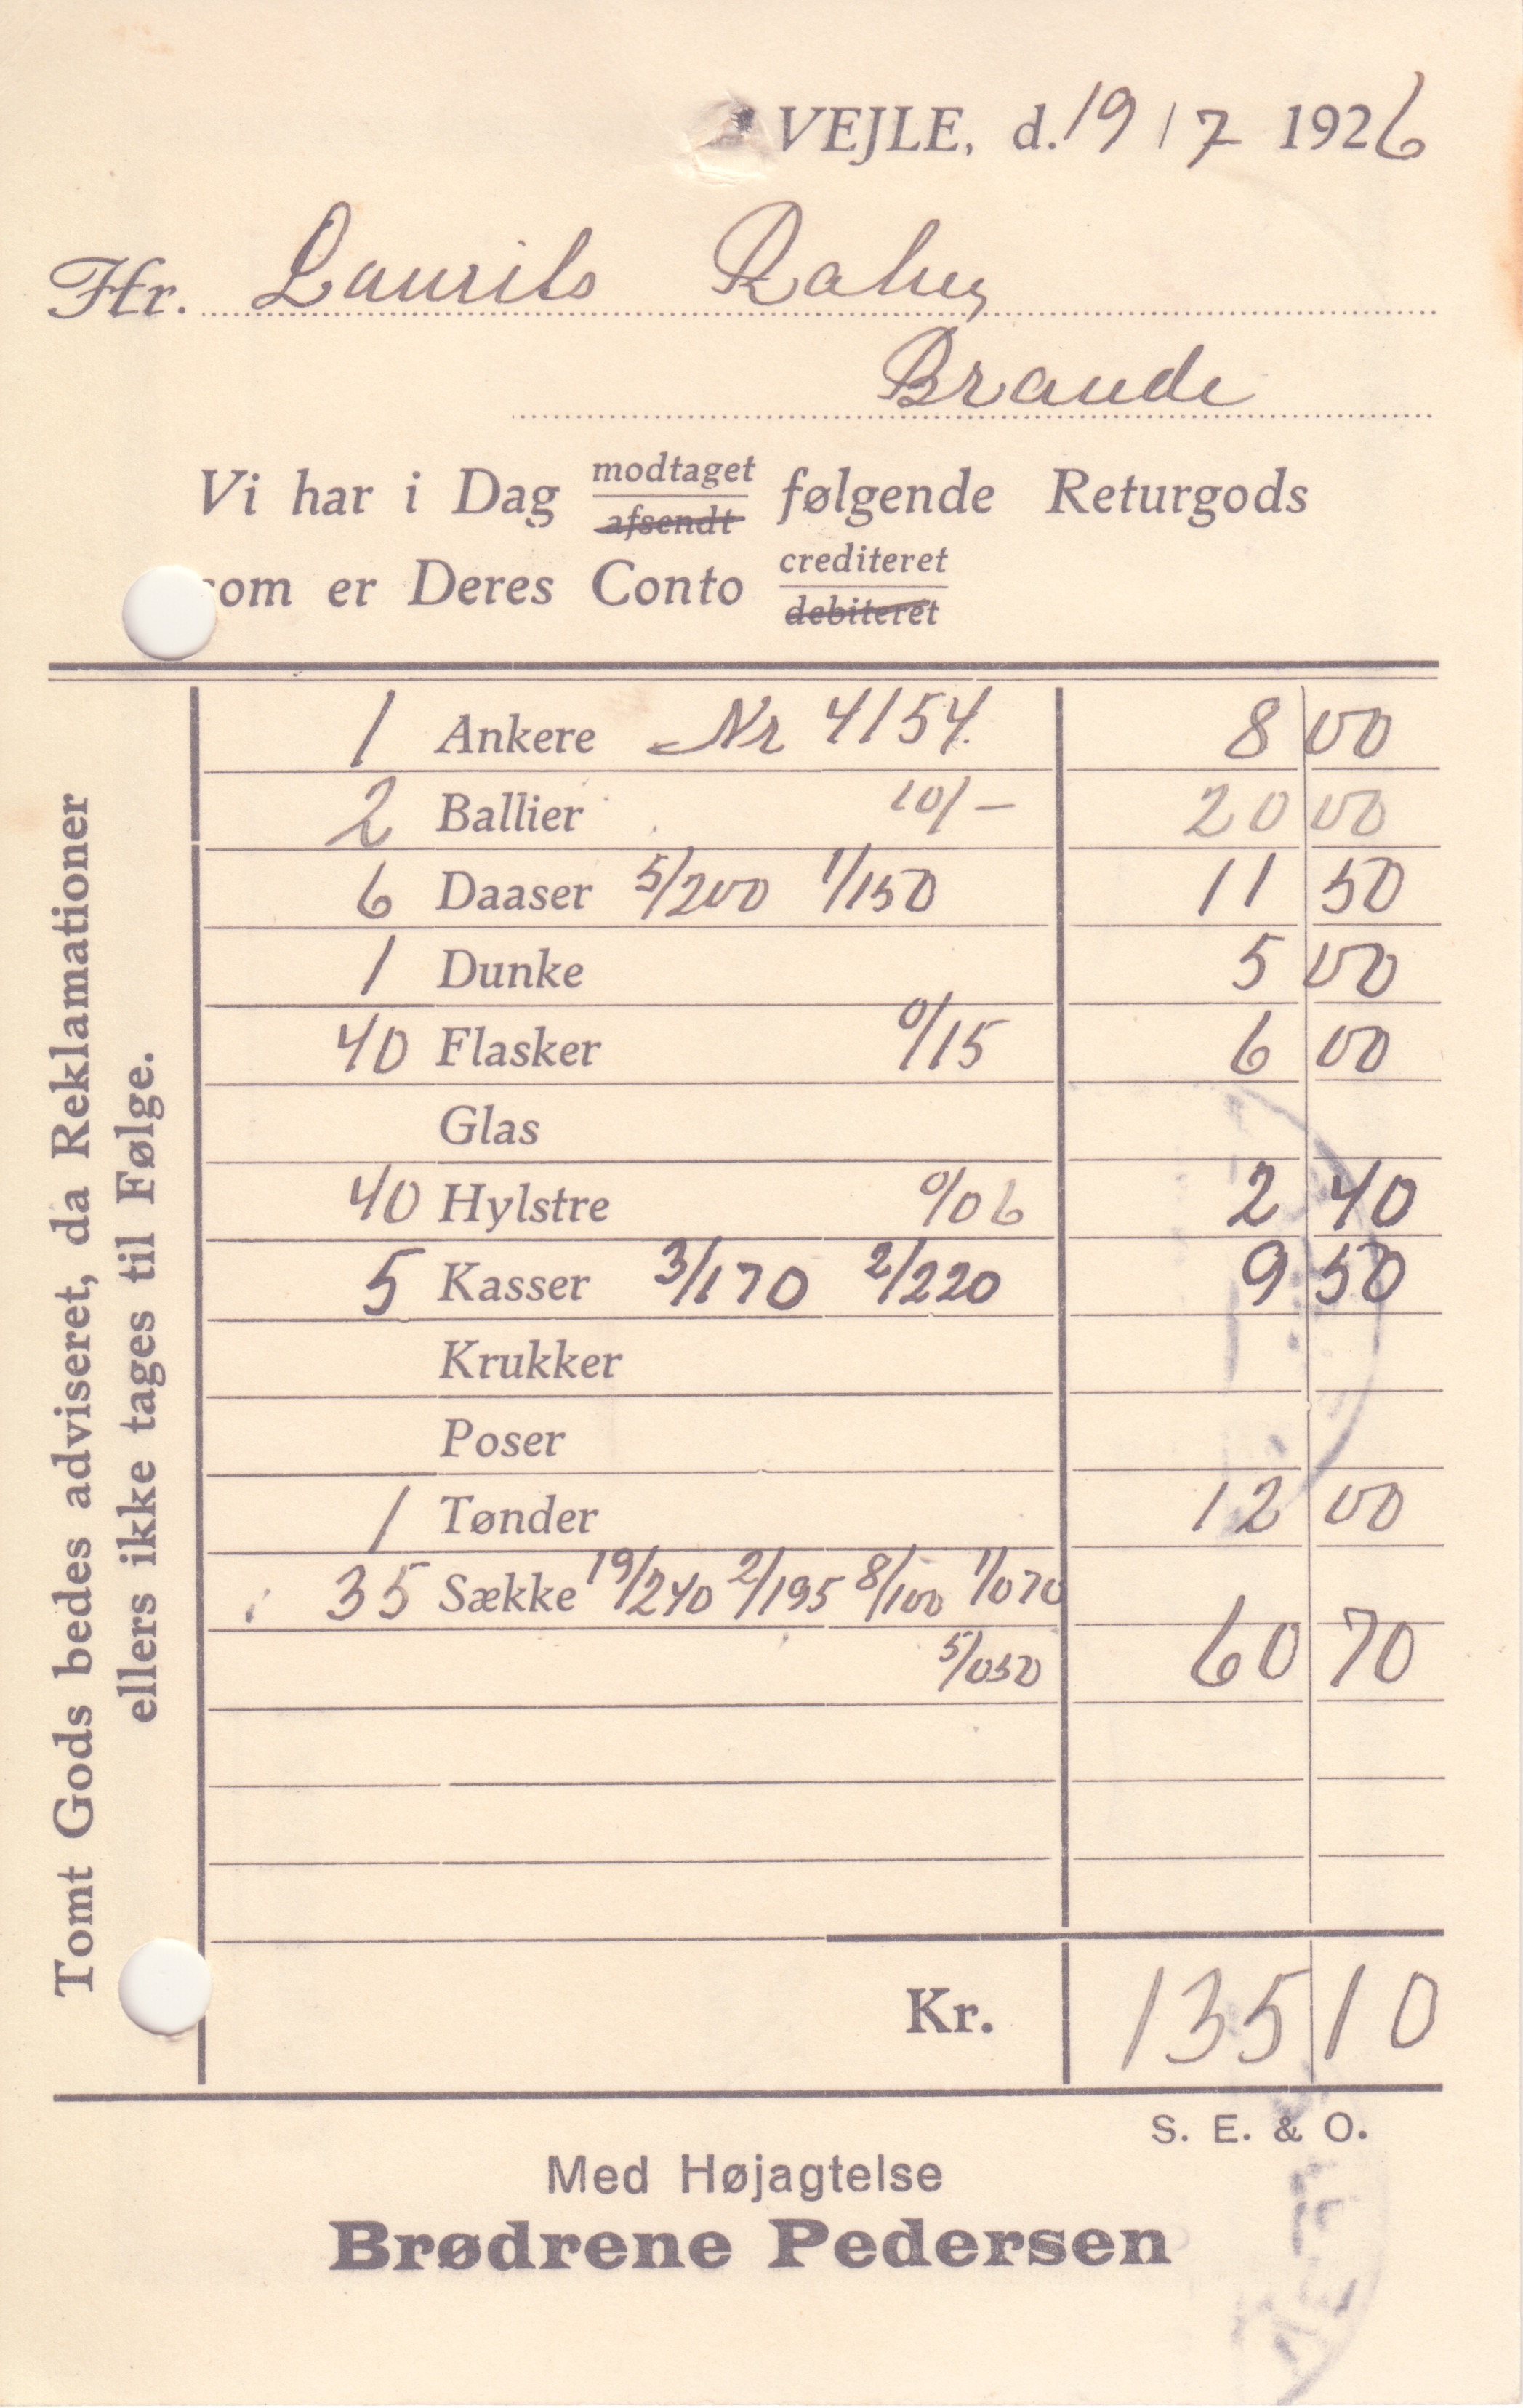 VEJLE, d. 19 / 7 1926
Hr. Laurits
Brande
Vi har i Dag modtaget afsendt følgende Returgods
som er Deres Conto crediteret debiteret
1 Ankere Nr 4154. 8 00
2 Ballier 10/- 20 00
6 Daaser 5/200 1/150 11 50
1 Dunke 5 00
40 Flasker 0/15 6 00
Glas
40 Hylstre 0/06 2 40
5 Kasser 3/170 2/220 9 50
Krukker
Poser
1 Tønder 12 00
35 Sække 19/240 2/195 8/100 1/070
5/050 60 70
Kr. 135 10
S. E. & O.
Med Højagtelse
Brødrene Pedersen
Tomt Gods bedes adviseret, da Reklamationer
ellers ikke tages til Følge.